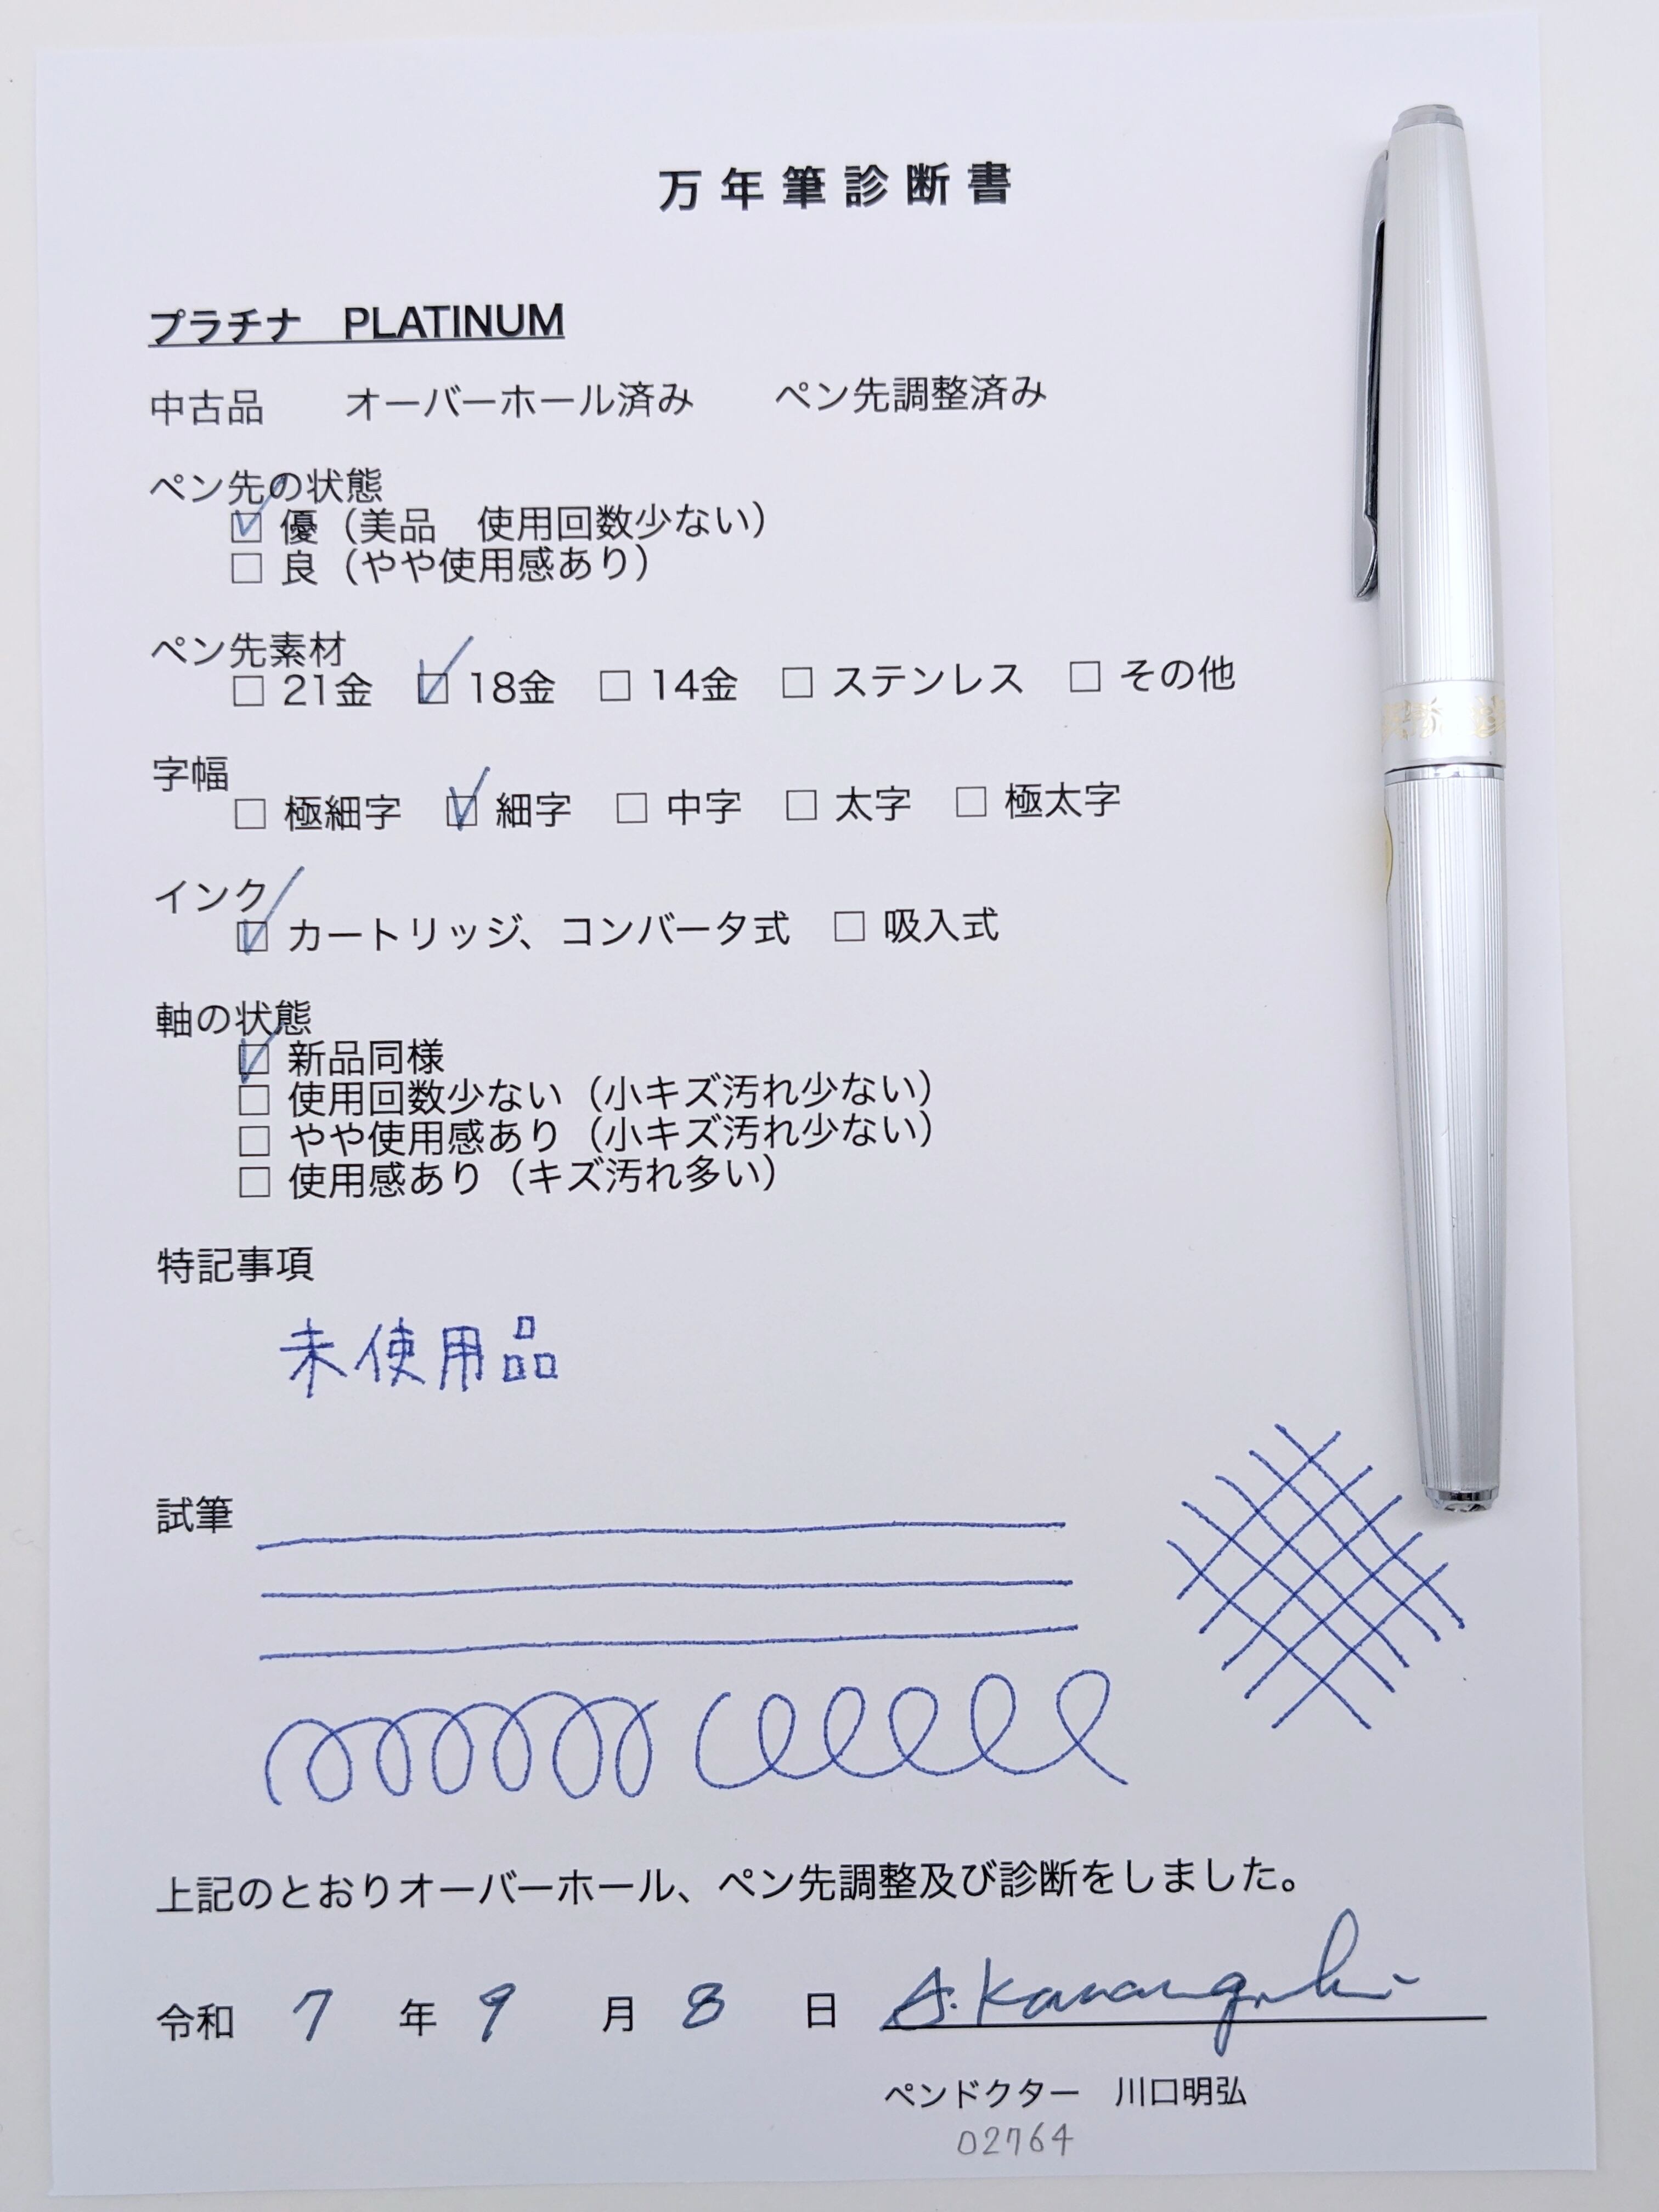 万年筆診断書
プラチナ　PLATINUM
中古品　　オーバーホール済み　　ペン先調整済み
ペン先の状態
☑ 優（美品　使用回数少ない）
□ 良（やや使用感あり）
ペン先素材
□ 21金　☑ 18金　□ 14金　□ ステンレス　□ その他
字幅
□ 極細字　☑ 細字　□ 中字　□ 太字　□ 極太字
インク
☑ カートリッジ、コンバータ式　□ 吸入式
軸の状態
☑ 新品同様
□ 使用回数少ない（小キズ汚れ少ない）
□ やや使用感あり（小キズ汚れ少ない）
□ 使用感あり（キズ汚れ多い）
特記事項
未使用品
試筆
上記のとおりオーバーホール、ペン先調整及び診断をしました。
令和 7 年 9 月 8 日 A. Kawaguchi
ペンドクター　川口明弘
02764